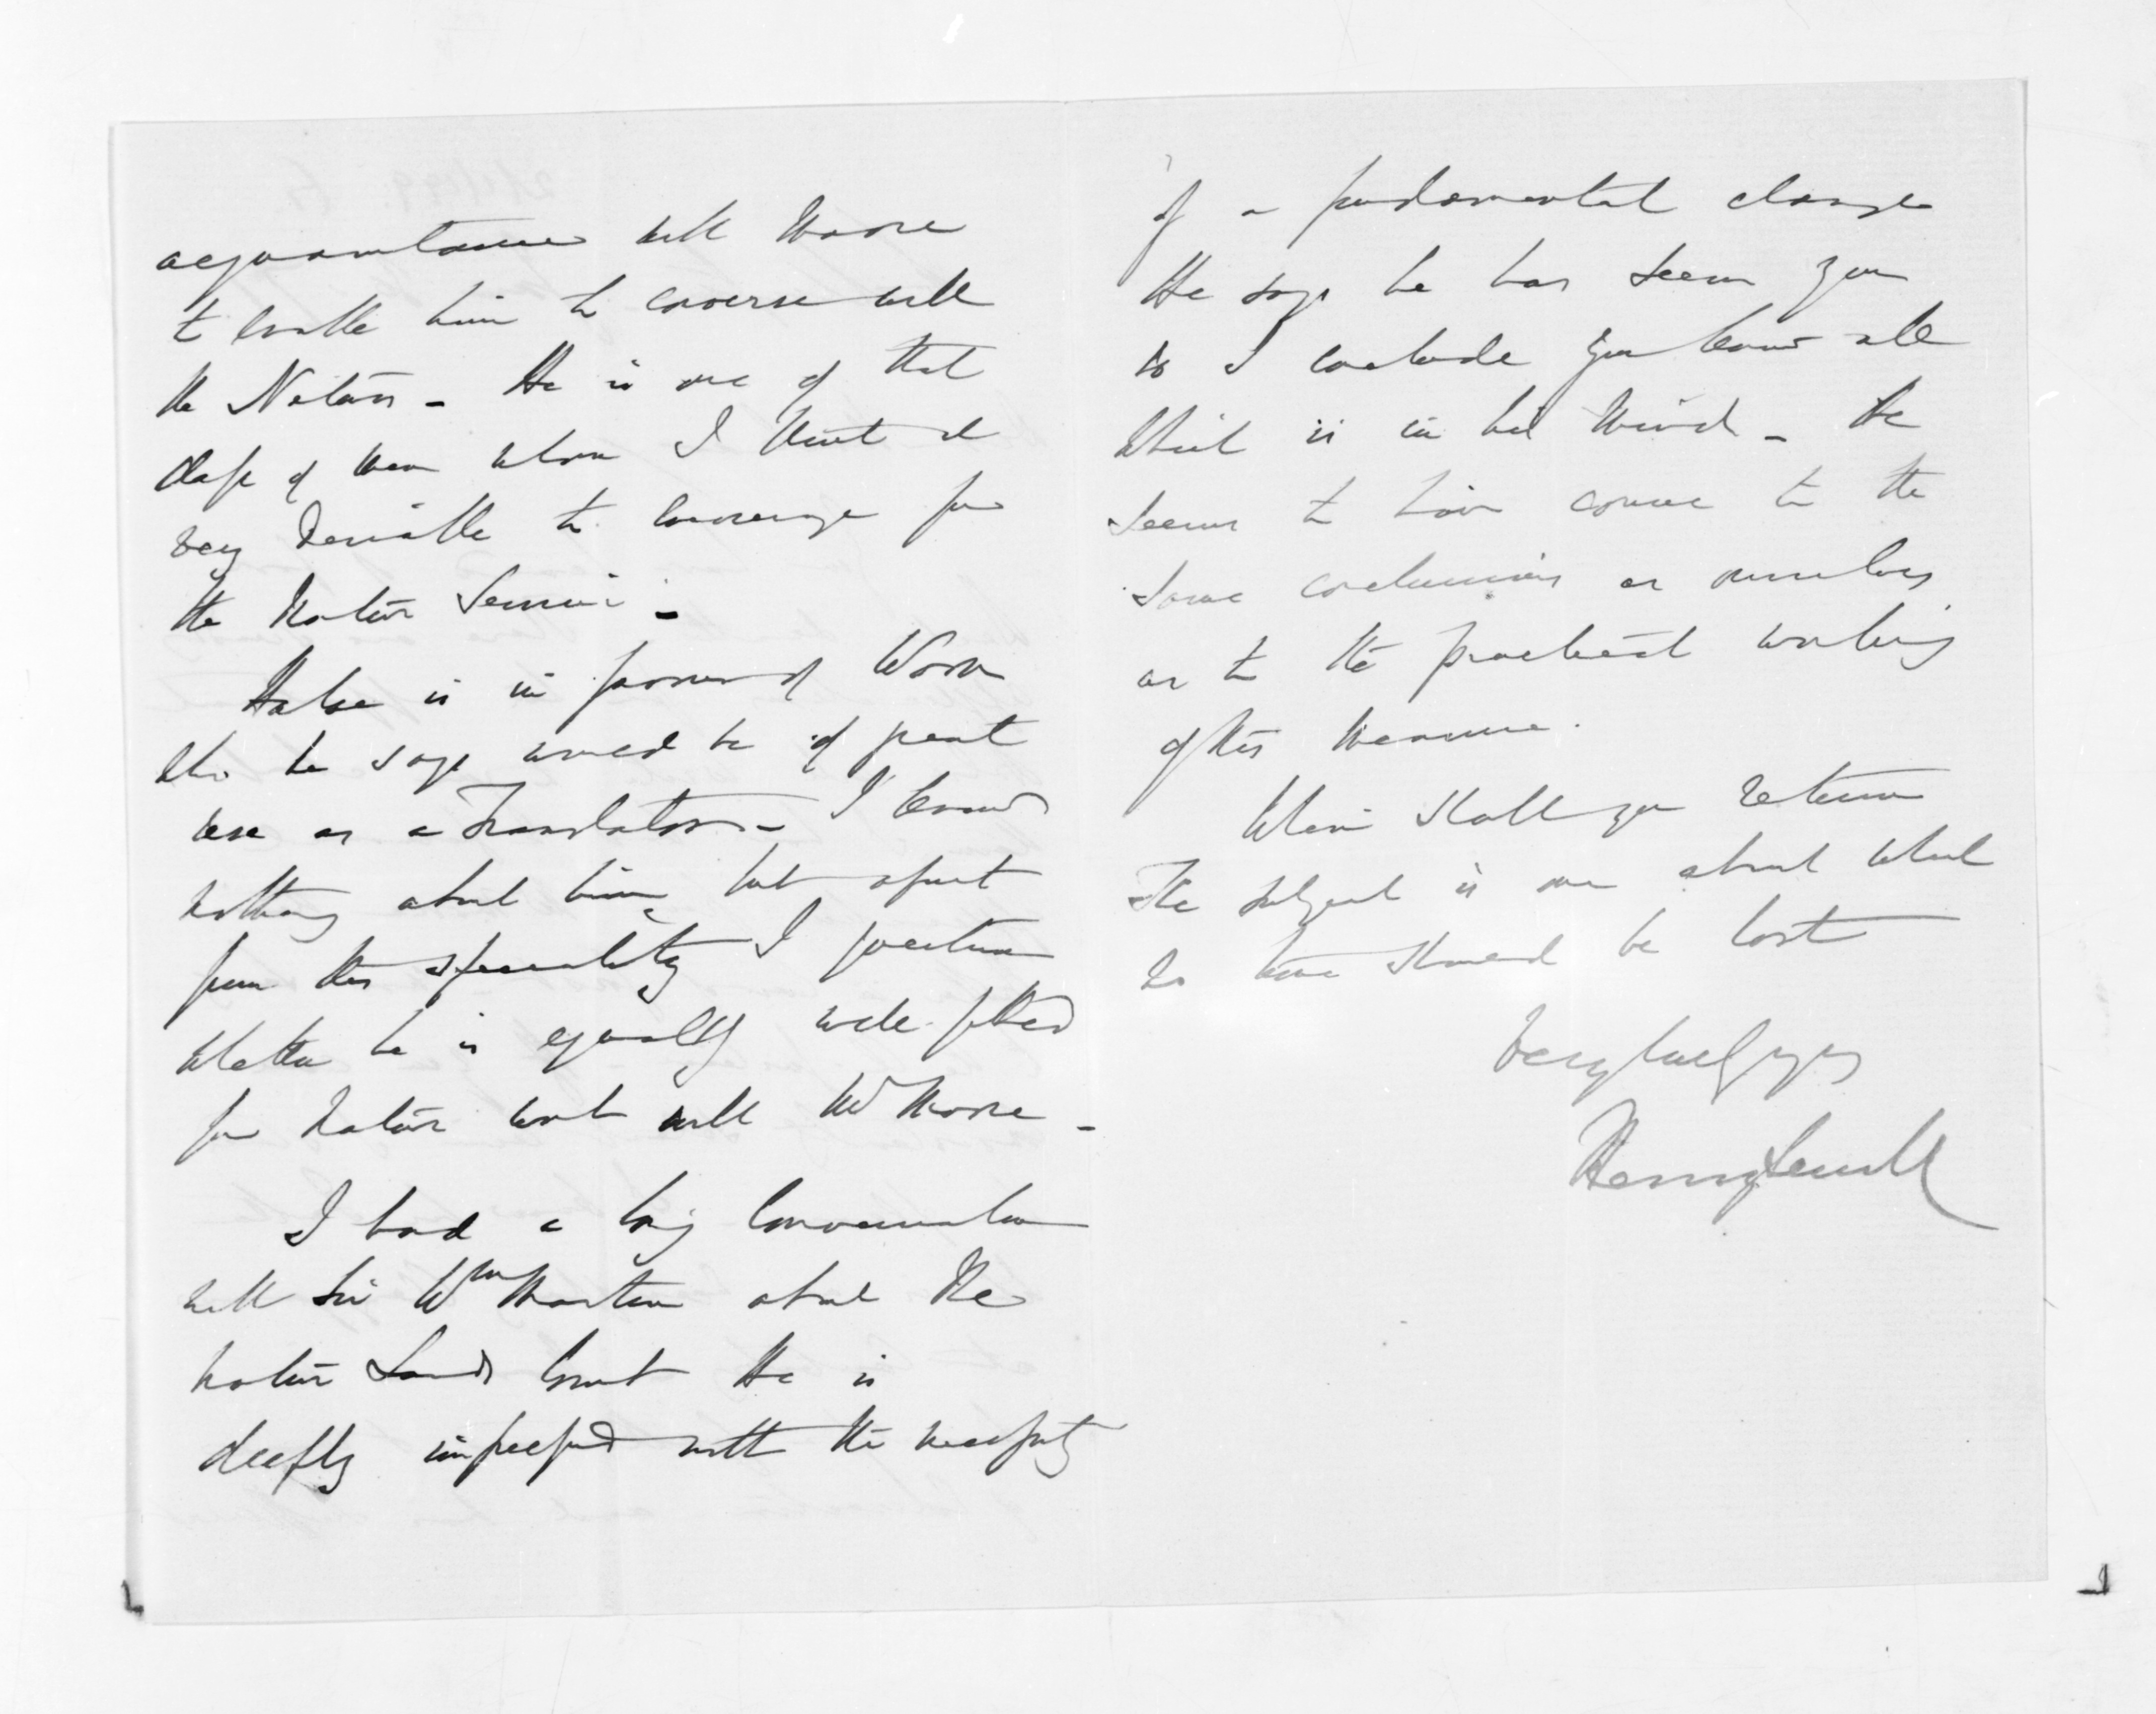 acquaintance with Maori
to enable him to converse with
the Natives - He is one of that
class of men whom I think it
very desirable to encourage for
the Native Service -
Halse is in favour of Worn
who he says would be of great
use as a Translator - I know
nothing about him, but apart
from this speciality I question
whether he is equally well fitted
for Native work with Mr Moore -
I had a long conversation
with Sir Wm Martin about the
Native Lands Court He is
deeply impressed with the necessity
of a fundamental change
He says he has seen you
so I conclude you know all
which is in his mind - He
seems to have come to the
same conclusions as ourselves
as to the practical working
of this measure.
When shall you return
The subject is one about which
no time should be lost
Very truly yrs
Henry Sewell